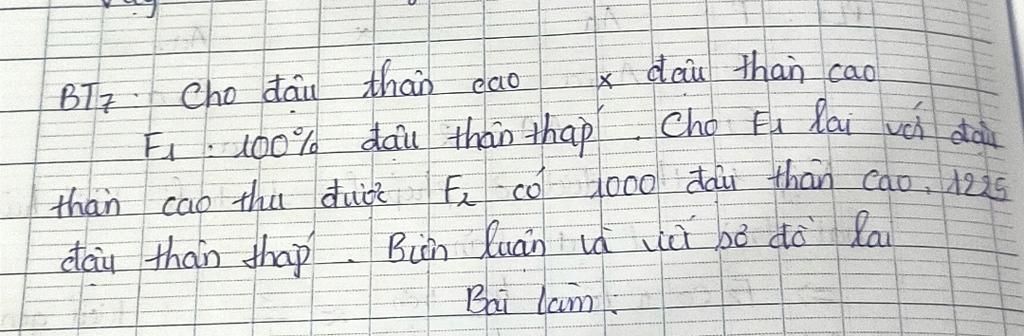 BT7. Cho đậu thân cao x đậu thân cao
F1 : 100% đậu thân thấp. Cho F1 lai với đậu
thân cao thu được F2 có 1000 đậu thân cao, 1225
đậu thân thấp. Biện luận và viết sơ đồ lai
Bài làm.